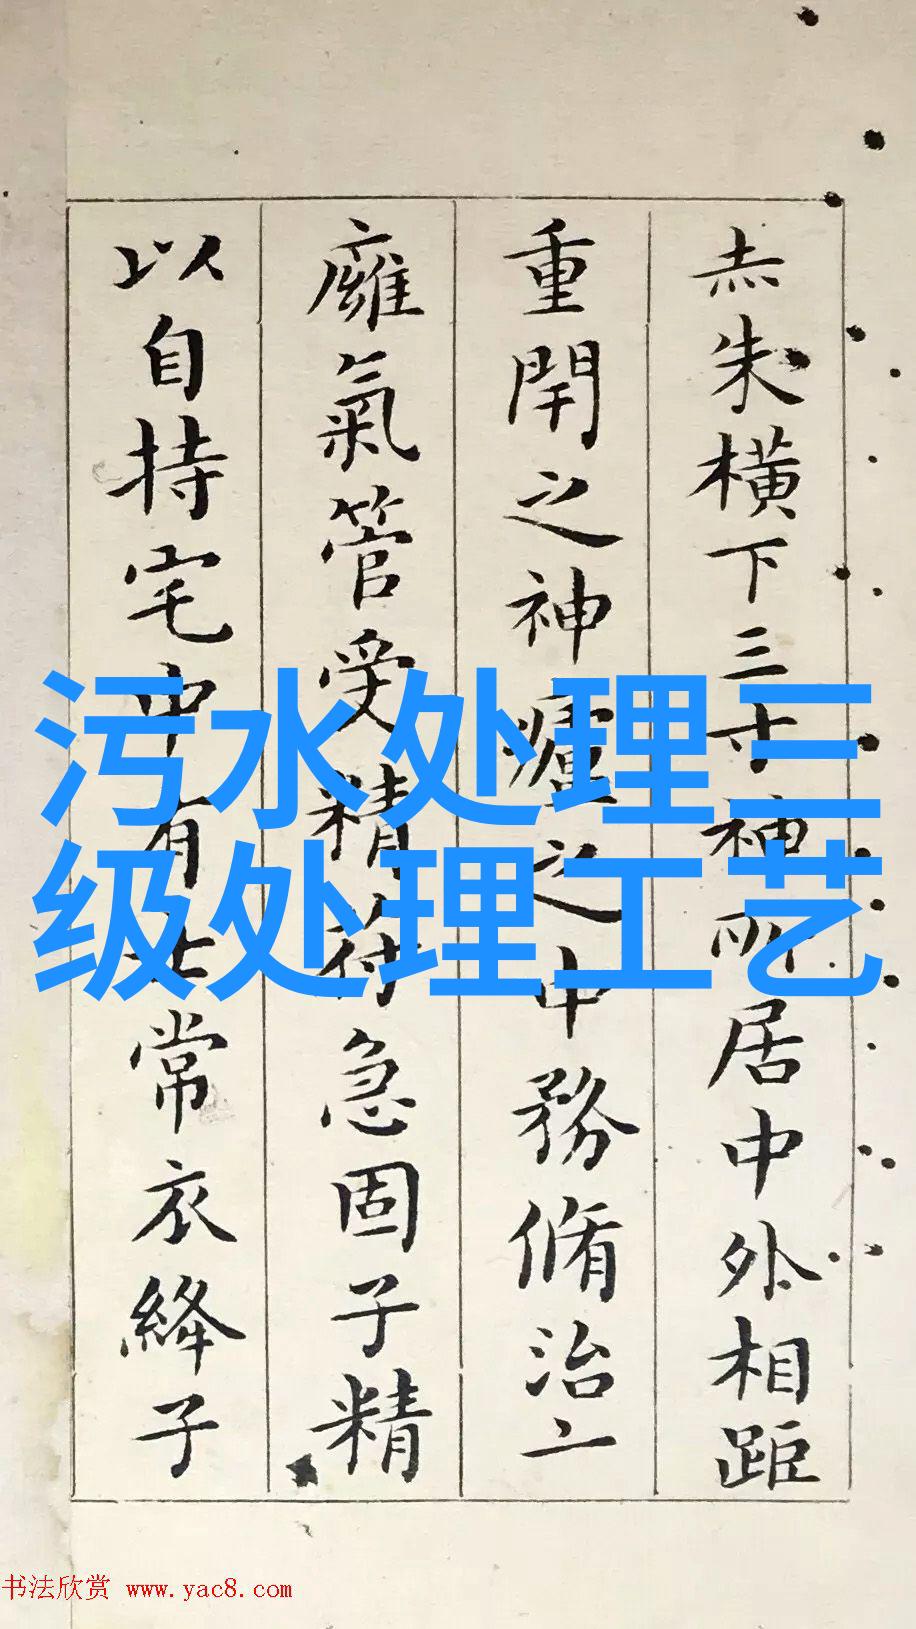 志朱橫下三寸神所居中外相距
重閈之神廬之中務脩治二
廱氣管受精符急固子精
以自持宅中有士常衣絳子
污水处理三
级处理工艺
书法欣赏 www.yac8.com